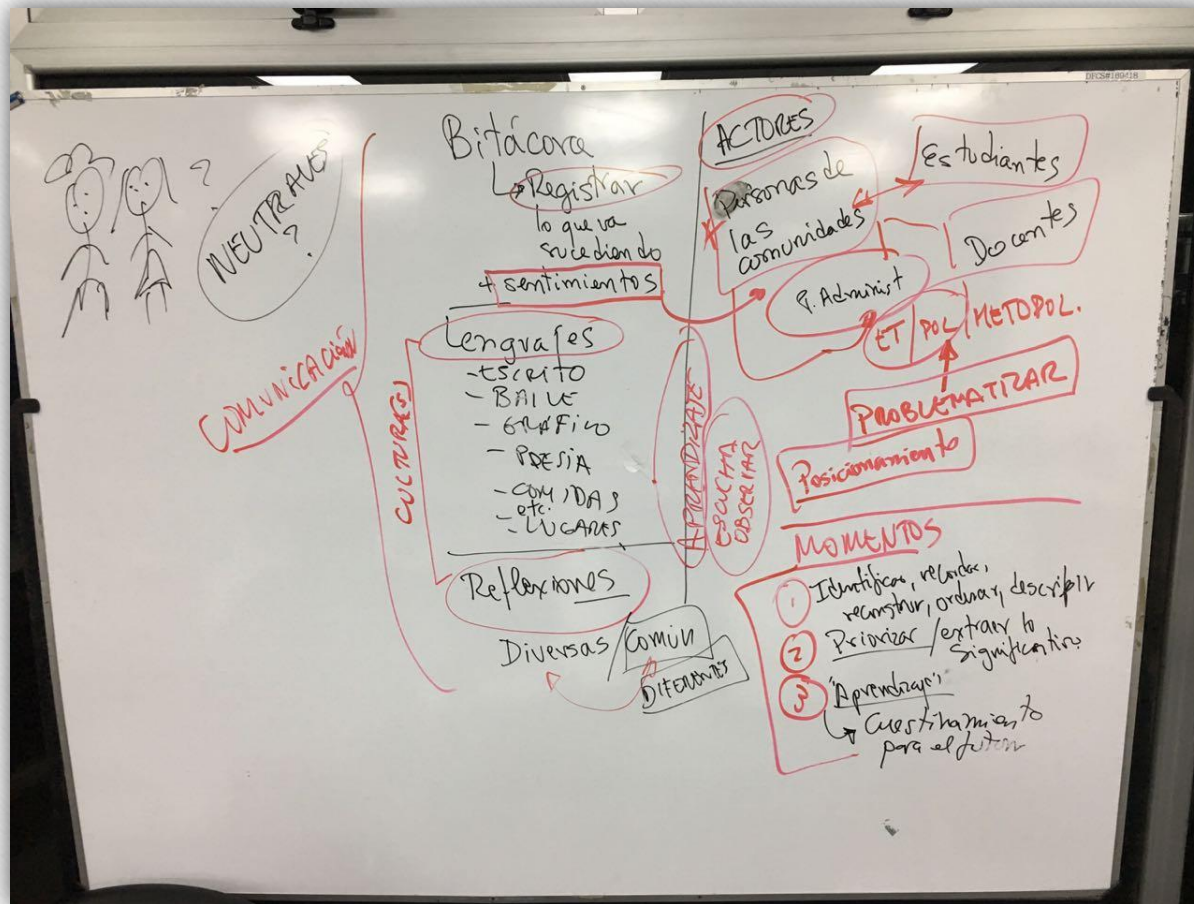 DFCS#169418
?
NEUTRALES
?
COMUNICACIÓN
Bitácora
Registrar
lo que va
sucediendo
+ sentimientos
CULTURA(S)
Lenguajes
- ESCRITO
- BAILE
- GRÁFICO
- POESIA
- COMIDAS
etc.
- LUGARES
Reflexiones
Diversas / Común
DIFERENTES
APRENDIZAJE
ESCUCHA
OBSERVAR
ACTORES
Personas de
las
comunidades
Estudiantes
Docentes
P. Administ
ET / POL / METODOL.
PROBLEMATIZAR
Posicionamiento
MOMENTOS
1 Identificar, recordar,
reconstruir, ordenar, describir
2 Priorizar / extraer lo
significativo
3 "Aprendizaje"
Cuestionamiento
para el futuro